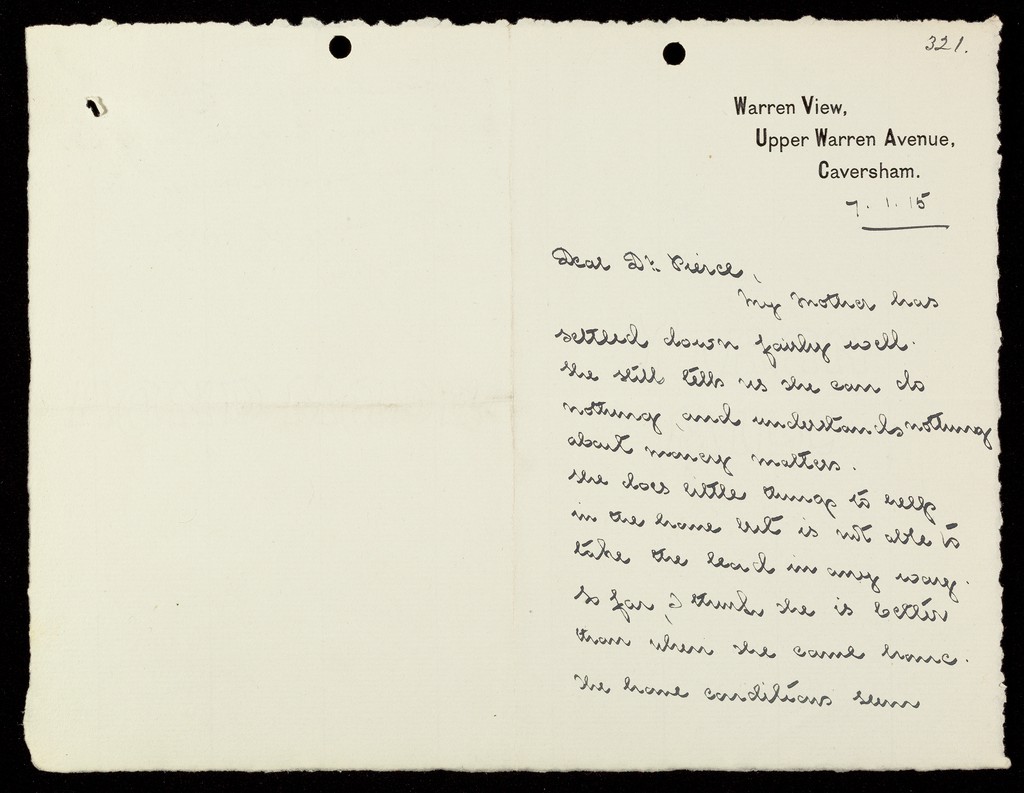 321.
Warren View,
Upper Warren Avenue,
Caversham.
7. 1. 15
Dear Dr. Pierce,
My Mother has
settled down fairly well.
She still tells us she can do
nothing, and understands nothing
about money matters.
She does little things to help
in the home but is not able to
take the lead in any way.
So far, I think she is better
than when she came home.
The home conditions seem